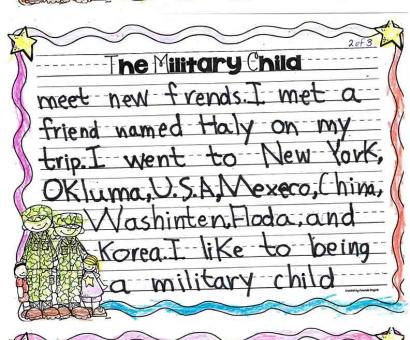 2 of 3
The Military Child
meet new frends. I met a
friend named Haly on my
trip. I went to New York,
OKluma, U.S.A, Mexeco, China,
Washinten, Floda, and
Korea. I like to being
a military child